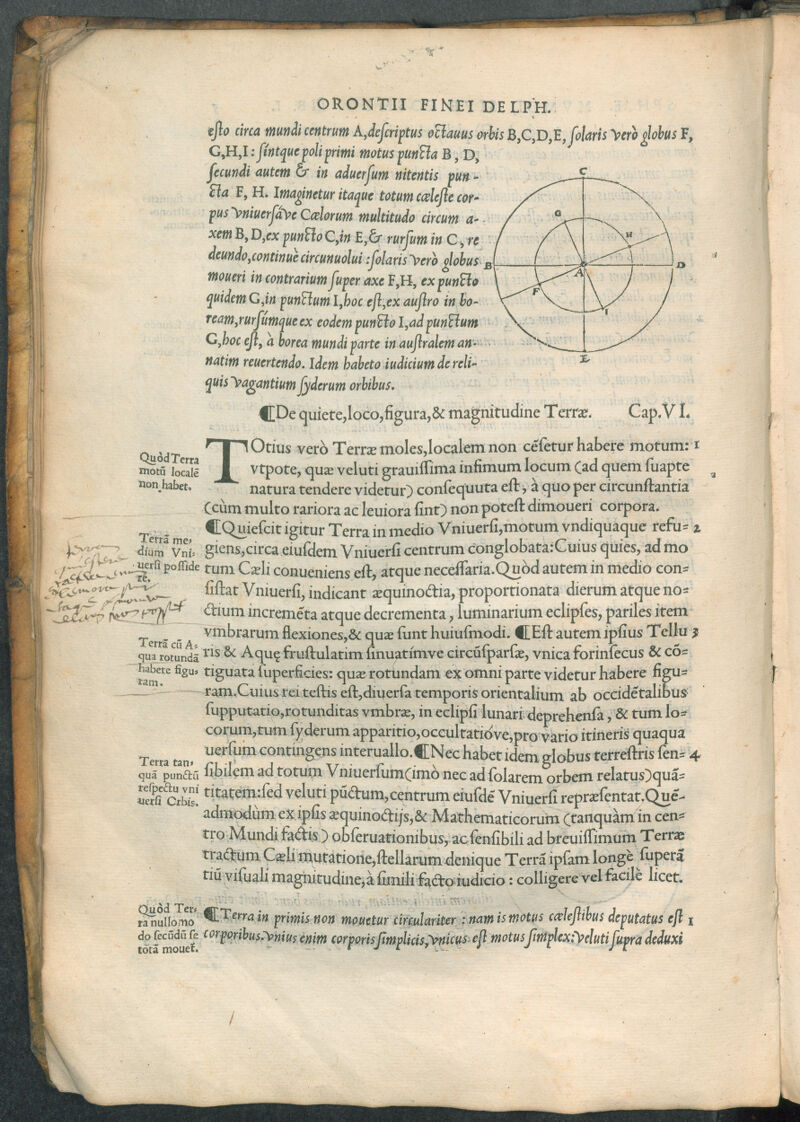 ORONTII FINEI DELPH.
eſto circa mundi centrum A,deſcriptus octauus orbis B,C,D,E, ſolaris verò globus F,
G,H,I: ſintque poli primi motus puncta B, D,
ſecundi autem & in aduerſum nitentis pun-
cta F, H. Imaginetur itaque totum cæleſte cor-
pus vniuerſáve Cælorum multitudo circum a-
xem B, D,ex puncto C,in E,& rurſum in C, re
deundo,continuè circunuolui: ſolaris verò globus
moueri in contrarium ſuper axe F,H, ex puncto
quidem G,in punctum I,hoc eſt,ex auſtro in bo-
ream,rurſúmque ex eodem puncto I,ad punctum
G,hoc eſt, à borea mundi parte in auſtralem an-
natim reuertendo. Idem habeto iudicium de reli-
quis vagantium ſyderum orbibus.
C
G
H
B
A
D
F
I
E
¶De quiete,loco,figura,& magnitudine Terræ. Cap.VI.
Quòd Terra
motū localē
non habet.
TOtius verò Terræ moles,localem non cēſetur habere motum: 1
vtpote, quæ veluti grauiſſima infimum locum (ad quem ſuapte
natura tendere videtur) conſequuta eſt, à quo per circunſtantia
(cùm multo rariora ac leuiora ſint) non poteſt dimoueri corpora.
Terrā me,
dium Vni,
uerſi poſſide
re.
¶Quieſcit igitur Terra in medio Vniuerſi,motum vndiquaque refu= 2
giens,circa eiuſdem Vniuerſi centrum conglobata:Cuius quies, ad mo
tum Cæli conueniens eſt, atque neceſſaria.Quòd autem in medio con=
ſiſtat Vniuerſi, indicant æquinoctia, proportionata dierum atque no=
ctium incremēta atque decrementa, luminarium eclipſes, pariles item
vmbrarum flexiones,& quæ ſunt huiuſmodi. ¶Eſt autem ipſius Tellu 3
Terrā cū A-
qua rotundā
habere figu,
ram.
ris & Aquę fruſtulatim ſinuatímve circūſparſæ, vnica forinſecus & cō=
tiguata ſuperficies: quæ rotundam ex omni parte videtur habere figu=
ram.Cuius rei teſtis eſt,diuerſa temporis orientalium ab occidētalibus
ſupputatio,rotunditas vmbræ, in eclipſi lunari deprehenſa, & tum lo=
corum,tum ſyderum apparitio,occultatióve,pro vario itineris quaqua
uerſum contingens interuallo.¶Nec habet idem globus terreſtris ſen= 4
Terra tan,
quā punctū
reſpectu vni
uerſi Orbis.
ſibilem ad totum Vniuerſum(imò nec ad ſolarem orbem relatus)quā=
titatem:ſed veluti pūctum,centrum eiuſdē Vniuerſi repræſentat.Quē-
admodùm ex ipſis æquinoctijs,& Mathematicorum (tanquàm in cen=
tro Mundi factis) obſeruationibus, ac ſenſibili ad breuiſſimum Terræ
tractum Cæli mutatione,ſtellarum denique Terrā ipſam longè ſuperā
tiū viſuali magnitudine,à ſimili facto iudicio: colligere vel facilè licet.
Quòd Ter,
ra nullo mo
do ſecūdū ſe
totā mouet̃.
¶Terra in primis non mouetur circulariter: nam is motus cæleſtibus deputatus eſt 1
corporibus.Vnius enim corporis ſimplicis,vnicus eſt motus ſimplex:veluti ſupra deduxi